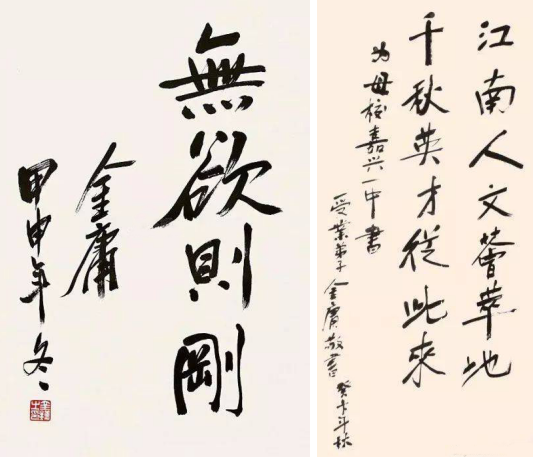 無欲則剛
金庸
甲申年冬
江南人文薈萃地
千秋英才從此來
为母校嘉兴一中書
受業弟子金庸敬書
癸卡年秋